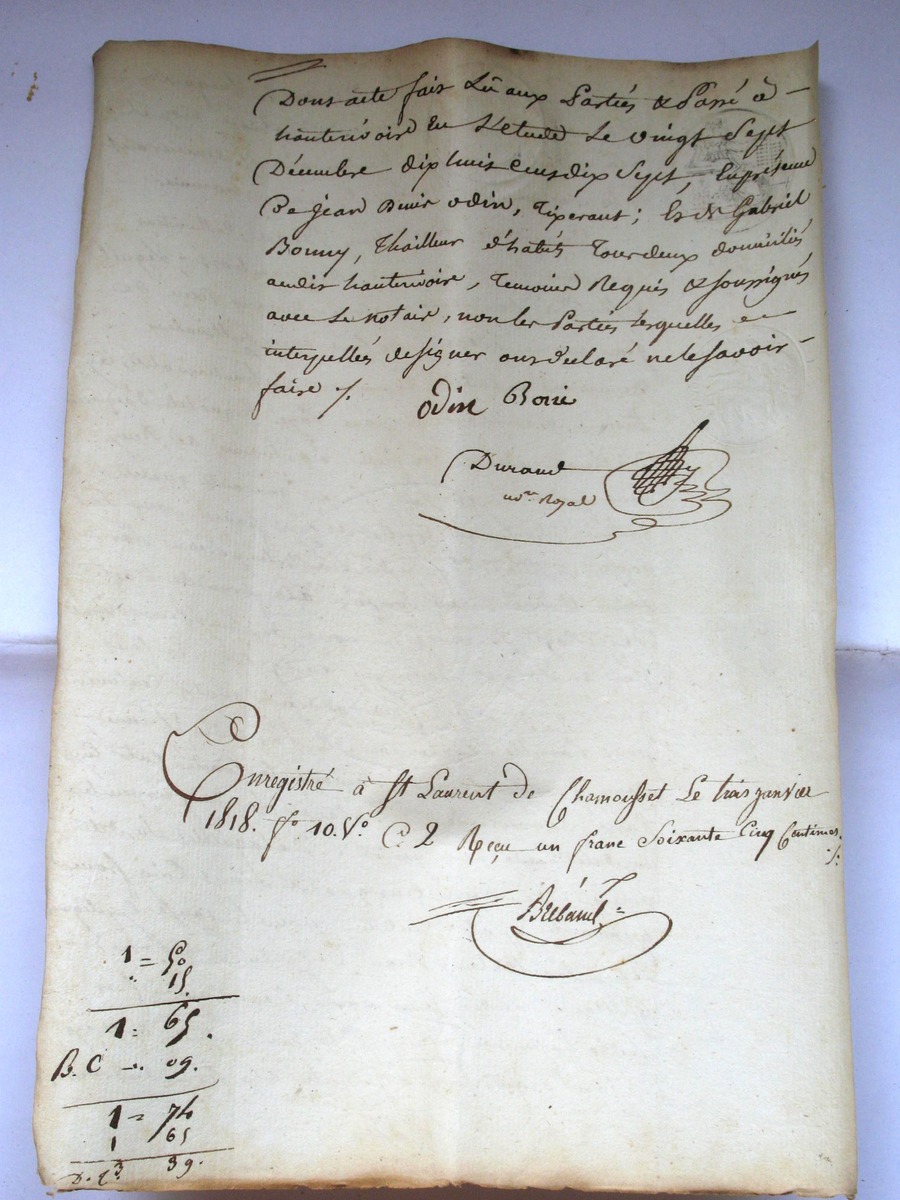 Dont acte fait Lû aux Parties & Passé à
hauterivoire En L'etude Le vingt Sept
Décembre dix huit Cens dix Sept, En présence
De jean Denis odin, Tixerant; Et de Gabriel
Bonny, Thailleur d'habits Tous deux domiciliés
audit hauterivoire, Temoins Requis & soussignés
avec Le Notaire, non les Parties Lesquelles
interpellées de signer ont déclaré ne le savoir
faire ./.
odin Borie
Durand
no.re Royal
Enregistré à St Laurent de Chamousset Le trois janvier
1818. fo 10. Vo C. 2 Reçu un franc Soixante Cinq Centimes ./.
1 = 50
" 15.
1 = 65.
B. C - .. 09.
1 = 74
1 65
3 39.